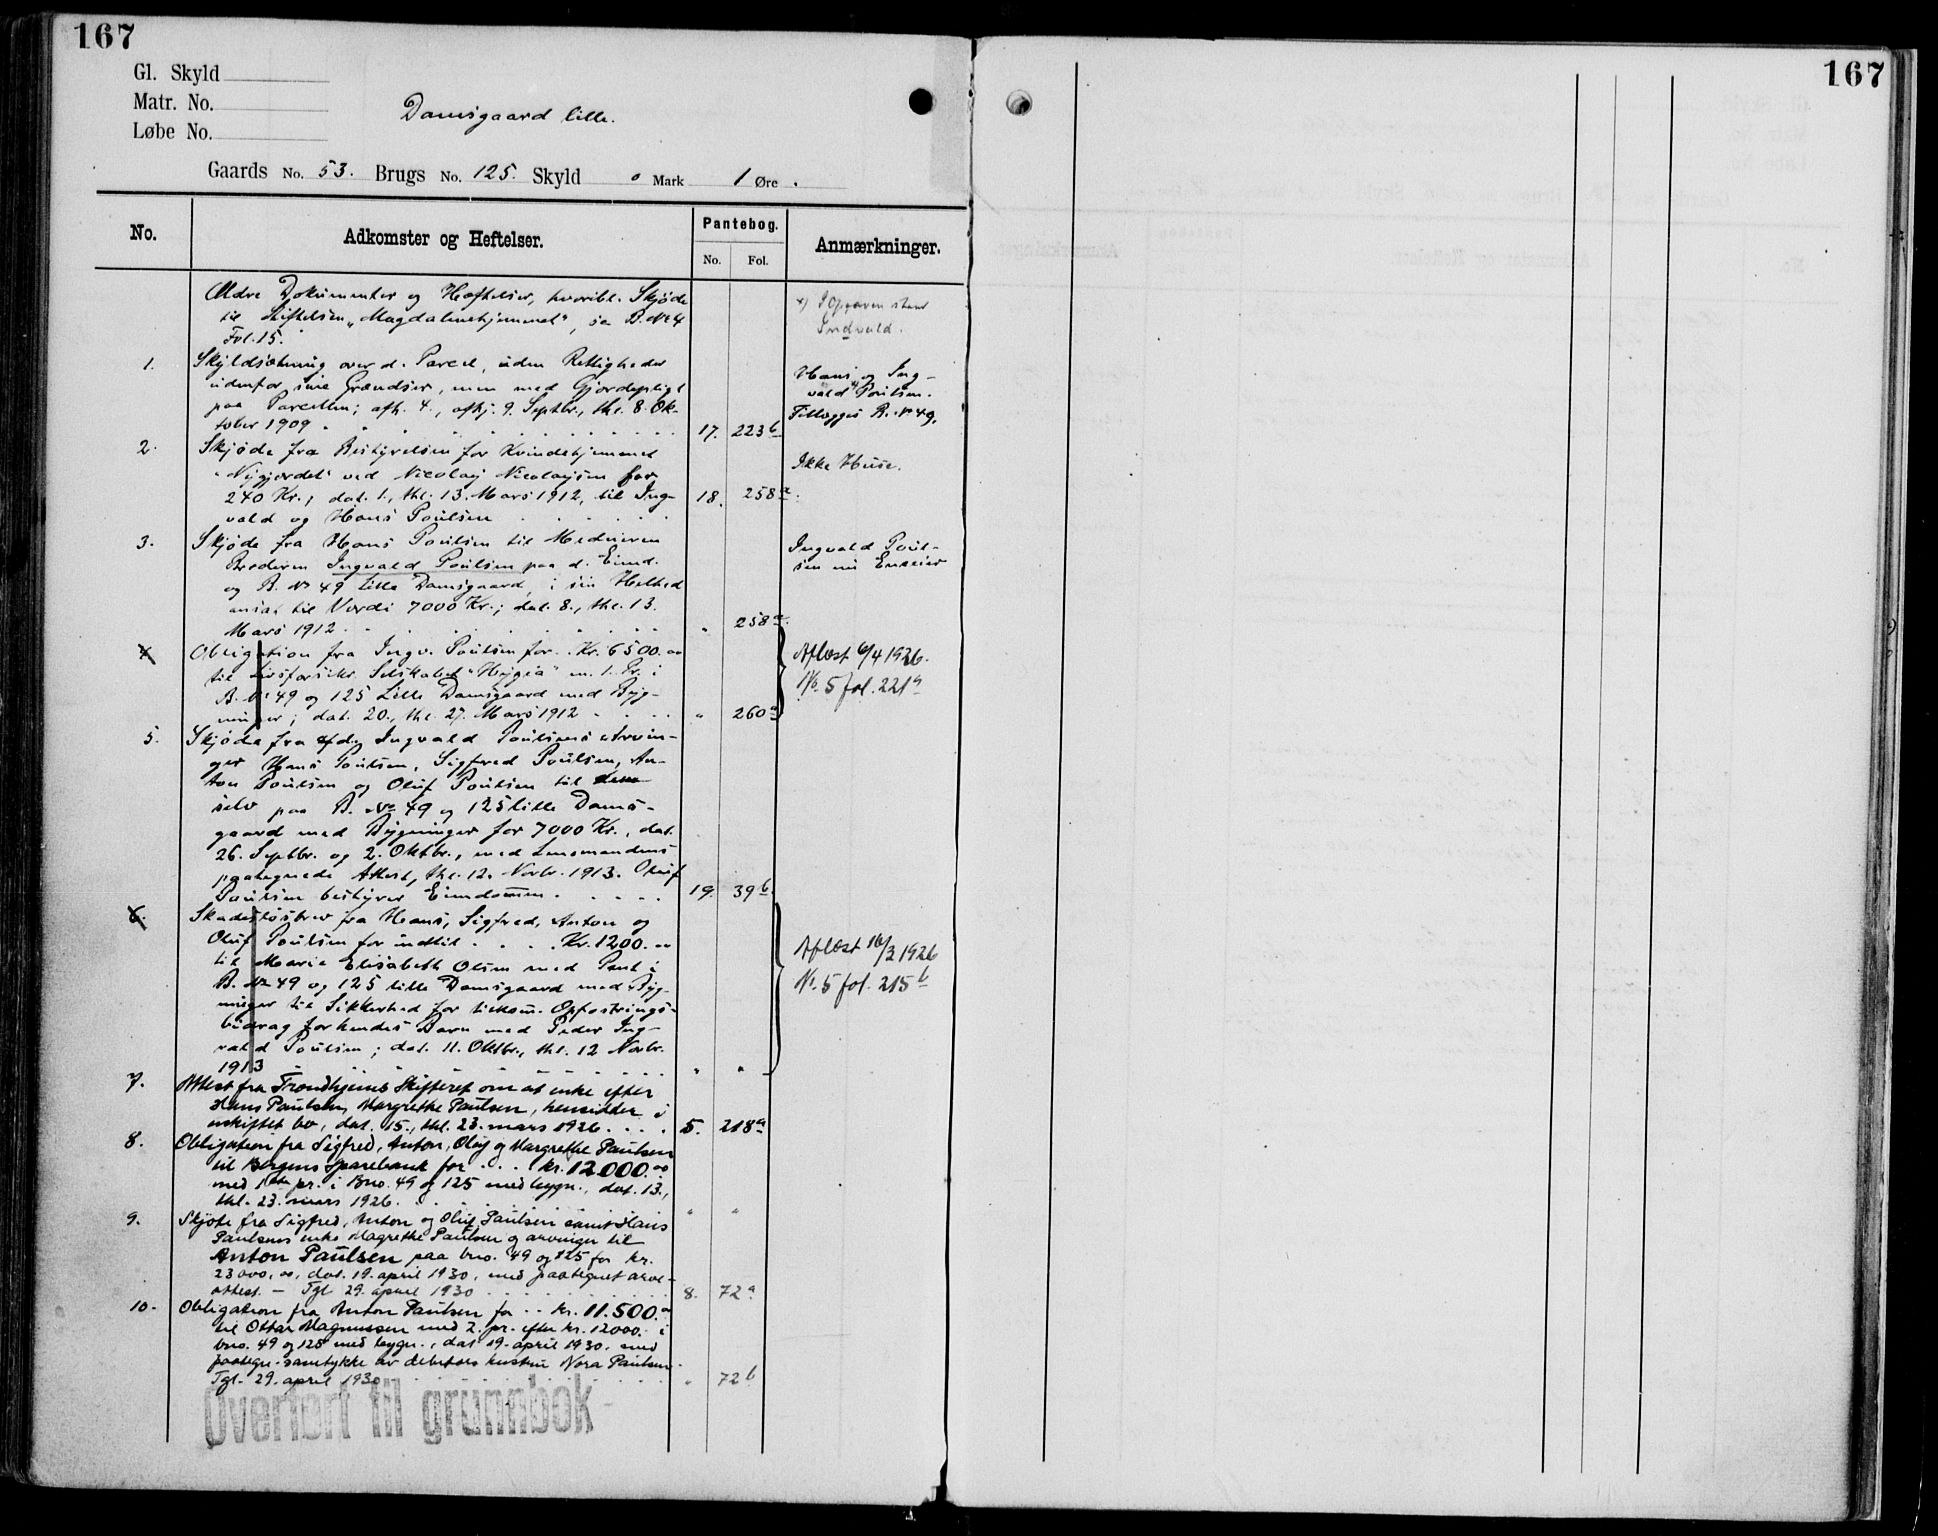 167
167
Gl. Skyld
Matr. No.
Løbe No.
Damsgaard lille.
Gaards No. 53. Brugs No. 125. Skyld 0 Mark 1 Øre.
No.
Adkomster og Heftelser.
Pantebog.
No. Fol.
Anmærkninger.
Ældre Dokumenter og Hæftelser, hvoribl. Skjøde
til Stiftelsen „Magdalenehjemmet“, se B. No 4
Fol. 15.
x) I Opgaven staar
Indvald.
1. Skyldsætning over d. Parcel, uden Rettigheder
udenfor sine Grændser, men med Gjerdepligt
paa Parcellen; afh. 4., afhj. 9. Septbr., thl. 8. Ok-
tober 1909 . . . 17. 223 b
Hans og Ing-
vald x) Poulsen.
Tillægges B. No 49.
2. Skjøde fra Bestyrelsen for Kvindehjemmet
"Nygjordet" ved Nicolay Nicolaysen for
240 Kr.; dat. 1., thl. 13. Mars 1912, til Ing- 18. 258 a.
vald og Hans Poulsen . . .
Ikke Huse.
3. Skjøde fra Hans Poulsen til Medeieren
Broderen Ingvald Poulsen paa d. Eiend.
og B. No 49 Lille Damsgaard, i sin Helhed
ansat til Værdi 7000 Kr.; dat. 8., thl. 13.
Mars 1912 . . . " 258 a.
Ingvald Poul-
sen nu Eneeier
4. Obligation fra Ingv. Poulsen for . Kr. 6500.00
til Livsforsikr. Selskabet "Hygea" m. 1. Pr. i
B. No 49 og 125 Lille Damsgaard med Byg-
ninger; dat. 20., thl. 27. Mars 1912 . . . " 260 a
Aflæst 6/4 1926.
No. 5 fol. 221 a
5. Skjøde fra afdøde Ingvald Poulsens Arvin-
ger Hans Poulsen, Sigfred Poulsen, An-
ton Poulsen og Oluf Poulsen til dem
selv paa B. No 49 og 125 Lille Dams-
gaard med Bygninger for 7000 Kr., dat.
26. Septbr. og 2. Oktbr., med Lensmandens
paategnede Attest, thl. 12. Novbr. 1913. Oluf
Poulsen bestyrer Eiendommen . . . 19. 39 b.
6. Skadesløsbrev fra Hans, Sigfred, Anton og
Oluf Poulsen for indtil . . . Kr. 1200.00
til Marie Elisabeth Olsen med Pant i
B. No 49 og 125 Lille Damsgaard med Byg-
ninger til Sikkerhed for tilkom. Opfostrings-
bidrag for hendes Barn med Peder Ing-
vald Poulsen; dat. 11. Oktbr., thl. 12 Novbr.
1913 . . . " "
Aflæst 16/3 1926
No. 5 fol. 215 b
7. Attest fra Trondhjems Skifteret om at enke efter
Hans Paulsen, Margrethe Paulsen, hensidder i
uskiftet bo, dat. 15., thl. 23. mars 1926 . . . 5. 218 a
8. Obligation fra Sigfred, Anton, Oluf og Margrethe Paulsen
til Bergens Sparebank for . . . kr. 12000.00
med 1ste pr. i Bno. 49 og 125 med bygn., dat. 13.,
thl. 23. mars 1926 . . . " "
9. Skjøte fra Sigfred, Anton og Oluf Paulsen samt Hans
Paulsens enke Magrethe Paulsen og arvinger til
Anton Paulsen, paa bno. 49 og 125 for kr.
23000,00, dat. 19. april 1930, med paategnet arve-
attest. — Tgl. 29. april 1930 . . . 8. 72 a
10. Obligation fra Anton Paulsen for .. kr. 11.500.00
til Ottar Magnussen med 2. pr. efter kr. 12000.- i
bno. 49 og 125 med bygn., dat. 19. april 1930, med
paategn. samtykke av debitors hustru Nora Paulsen.
Tgl. 29. april 1930 . . . " 72 b
Overført til grunnbok